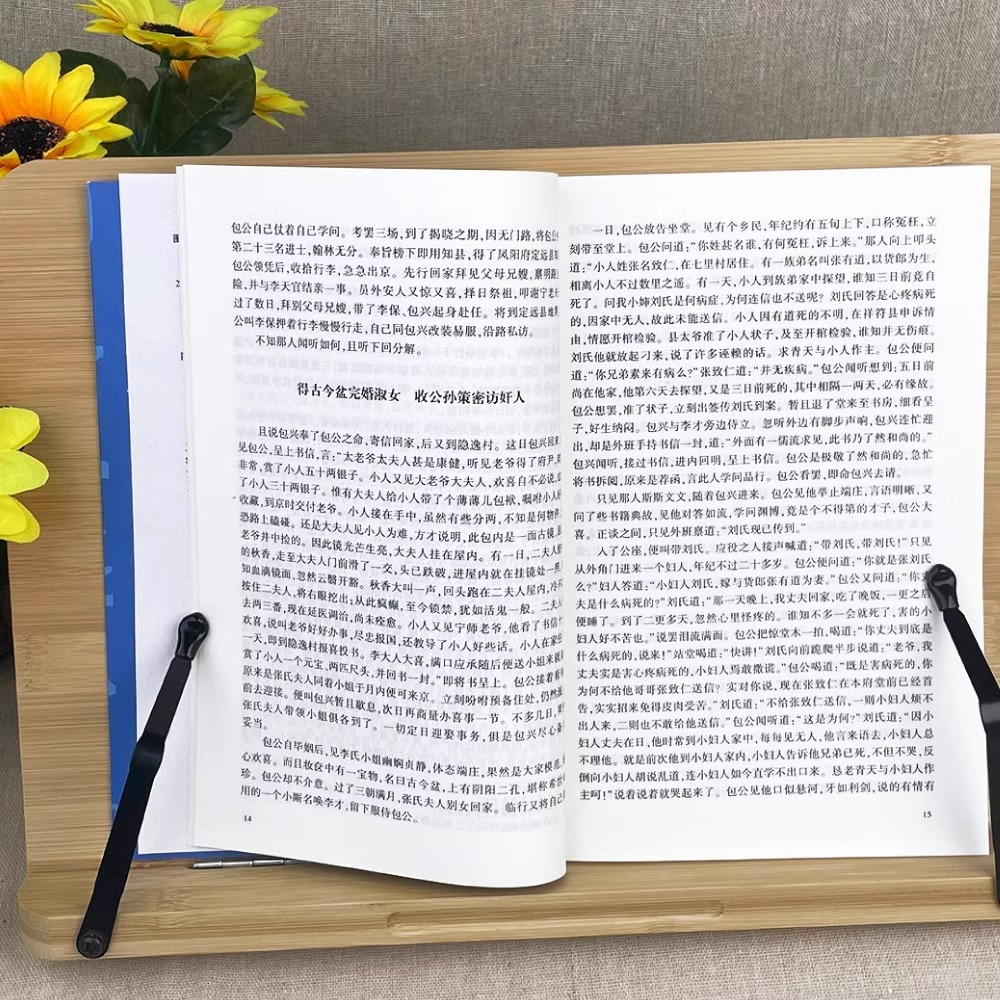 包公自己仗着自己学问。考罢三场,到了揭晓之期,因无门路,将包公
第二十三名进士,翰林无分。奉旨榜下即用知县,得了凤阳府定远县
包公领凭后,收拾行李,急急出京。先行回家拜见父母兄嫂,禀明路
险,并与李天官结亲一事。员外安人又惊又喜,择日祭祖,叩谢宁老
过了数日,拜别父母兄嫂,带了李保、包兴起身赴任。将到定远县地
公叫李保押着行李慢慢行走,自己同包兴改装易服,沿路私访。
不知那人闻听如何,且听下回分解。
得古今盆完婚淑女 收公孙策密访奸人
且说包兴奉了包公之命,寄信回家,后又到隐逸村。这日包兴回来
见包公,呈上书信,言:“太老爷太夫人甚是康健,听见老爷得了府尹,
非常,赏了小人五十两银子。小人又见大老爷大夫人,欢喜自不必说,
了小人三十两银子。惟有大夫人给小人带了个薄薄儿包袱,嘱咐小人
收藏,到京时交付老爷。小人接在手中,虽然有些分两,不知是何物件,
恐路上磕碰。还是大夫人见小人为难,方才说明,此包内是一面古镜,
老爷井中捡的。因此镜光芒生亮,大夫人挂在屋内。有一日,二夫人
的秋香,走至大夫人门前滑了一交,头已跌破,进屋内就在挂镜处一照
知血滴镜面,忽然云翳开豁。秋香大叫一声,回头跑在二夫人屋内,冷不
按住二夫人,将右眼挖出;从此疯癫,至今锁禁,犹如活鬼一般。二夫
去两三番,现在延医调治,尚未痊愈。小人又见宁师老爷,他看了书信
欢喜,说叫老爷好好办事,尽忠报国,还教导了小人好些话。小人在家
一天,即到隐逸村报喜投书。李大人大喜,满口应承随后便送小姐来就
赏了小人一个元宝、两匹尺头,并回书一封。”即将书呈上。包公接着看
原来是张氏夫人同着小姐于月内便可来京。立刻吩咐预备住处,仍然
前去迎接。便叫包兴暂且歇息,次日再商量办喜事一节。不多几日,
张氏夫人带领小姐俱各到了。一切定日迎娶事务,俱是包兴尽心备
妥当。
包公自毕姻后,见李氏小姐幽娴贞静,体态端庄,果然是大家模范,
心欢喜。而且妆奁中有一宝物,名曰古今盆,上有阴阳二孔,堪称希世
珍。包公却不介意。过了三朝满月,张氏夫人别女回家。临行又将自己
用的一个小厮名唤李才,留下服侍包公。
14
一日,包公放告坐堂。见有个乡民,年纪约有五旬上下,口称冤枉,立
刻带至堂上。包公问道:“你姓甚名谁,有何冤枉,诉上来。”那人向上叩头
道:“小人姓张名致仁,在七里村居住。有一族弟名叫张有道,以货郎为生,
相离小人不过数里之遥。有一天,小人到族弟家中探望,谁知三日前竟自
死了。问我小婶刘氏是何病症,为何连信也不送呢?刘氏回答是心疼病死
的,因家中无人,故此未能送信。小人因有道死的不明,在祥符县申诉情
由,情愿开棺检验。县太爷准了小人状子,及至开棺检验,谁知并无伤痕。
刘氏他就放起刁来,说了许多诬赖的话。求青天与小人作主。包公便问
道:“你兄弟素来有病么?”张致仁道:“并无疾病。”包公闻听想到:五日前
尚在他家,他第六天去探望,又是三日前死的,其中相隔一两天,必有缘故。
包公想罢,准了状子,立刻出签传刘氏到案。暂且退了堂来至书房,细看呈
子,好生纳闷。包兴与李才旁边侍立。忽听外边有脚步声响,包兴连忙迎
出,却是外班手持书信一封,道:“外面有一儒流求见,此书乃了然和尚的。”
包兴闻听,接过书信,进内回明,呈上书信。包公是极敬了然和尚的,急忙
将书拆阅,原来是荐函,言此人学问品行。包公看罢,即命包兴去请。
只见那人斯斯文文,随着包兴进来。包公见他举止端庄,言语明晰,又
问了些书籍典故,见他对答如流,学问渊博,竟是个不得第的才子,包公大
喜。正谈之间,只见外班禀道:“刘氏现已传到。”
入了公座,便叫带刘氏。应役之人接声喊道:“带刘氏,带刘氏!”只见
从外角门进来一个妇人,年纪不过二十多岁。包公便问道:“你就是张刘氏
么?”妇人答道:“小妇人刘氏,嫁与货郎张有道为妻。”包公又问道:“你丈
夫是什么病死的?”刘氏道:“那一天晚上,我丈夫回家,吃了晚饭,一更之后
便睡了。到了二更多天,忽然心里怪疼的。谁知不多一会就死了,害的小
妇人好不苦也。”说罢泪流满面。包公把惊堂木一拍,喝道:“你丈夫到底是
什么病死的,说来!”站堂喝道:“快讲!”刘氏向前跪爬半步说道:“老爷,我
丈夫实是害心疼病死的,小妇人焉敢撒谎。”包公喝道:“既是害病死的,你
为何不给他哥哥张致仁送信?实对你说,现在张致仁在本府堂前已经首
告,实实招来免得皮肉受苦。”刘氏道:“不给张致仁送信,一则小妇人烦不
出人来,二则也不敢给他送信。”包公闻听道:“这是为何?”刘氏道:“因小
妇人丈夫在日,他时常到小妇人家中,每每见无人,他言来语去,小妇人总
不理他。就是前次他到小妇人家内,小妇人告诉他兄弟已死,不但不哭,反
倒向小妇人胡说乱道,连小妇人如今直学不出口来。恳老青天与小妇人作
主呵!”说着说着就哭起来了。包公见他口似悬河,牙如利剑,说的有情有
15